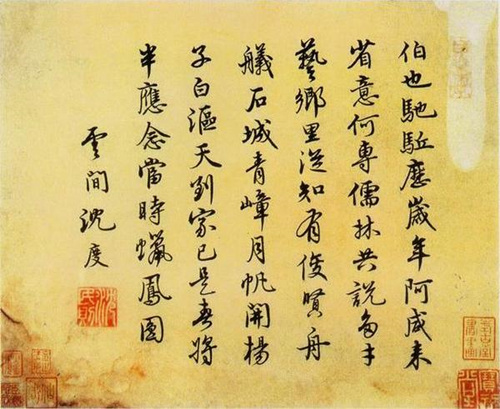 伯也馳駈歷歲年阿咸来
省意何專儒林共說多才
藝鄉里從知有俊賢舟
艤石城青嶂月帆開楊
子白漚天到家已是春將
半應念當時蠟鳳圓
雲間沈度
沈民則